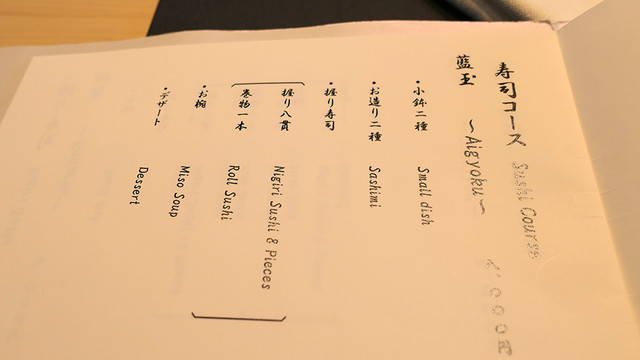 寿司コース Sushi Course
藍玉 ～Aigyoku～
・小鉢二種 Small dish
・お造り二種 Sashimi
・握り寿司
握り八貫 Nigiri Sushi 8 Pieces
巻物一本 Roll Sushi
・お椀 Miso Soup
・デザート Dessert